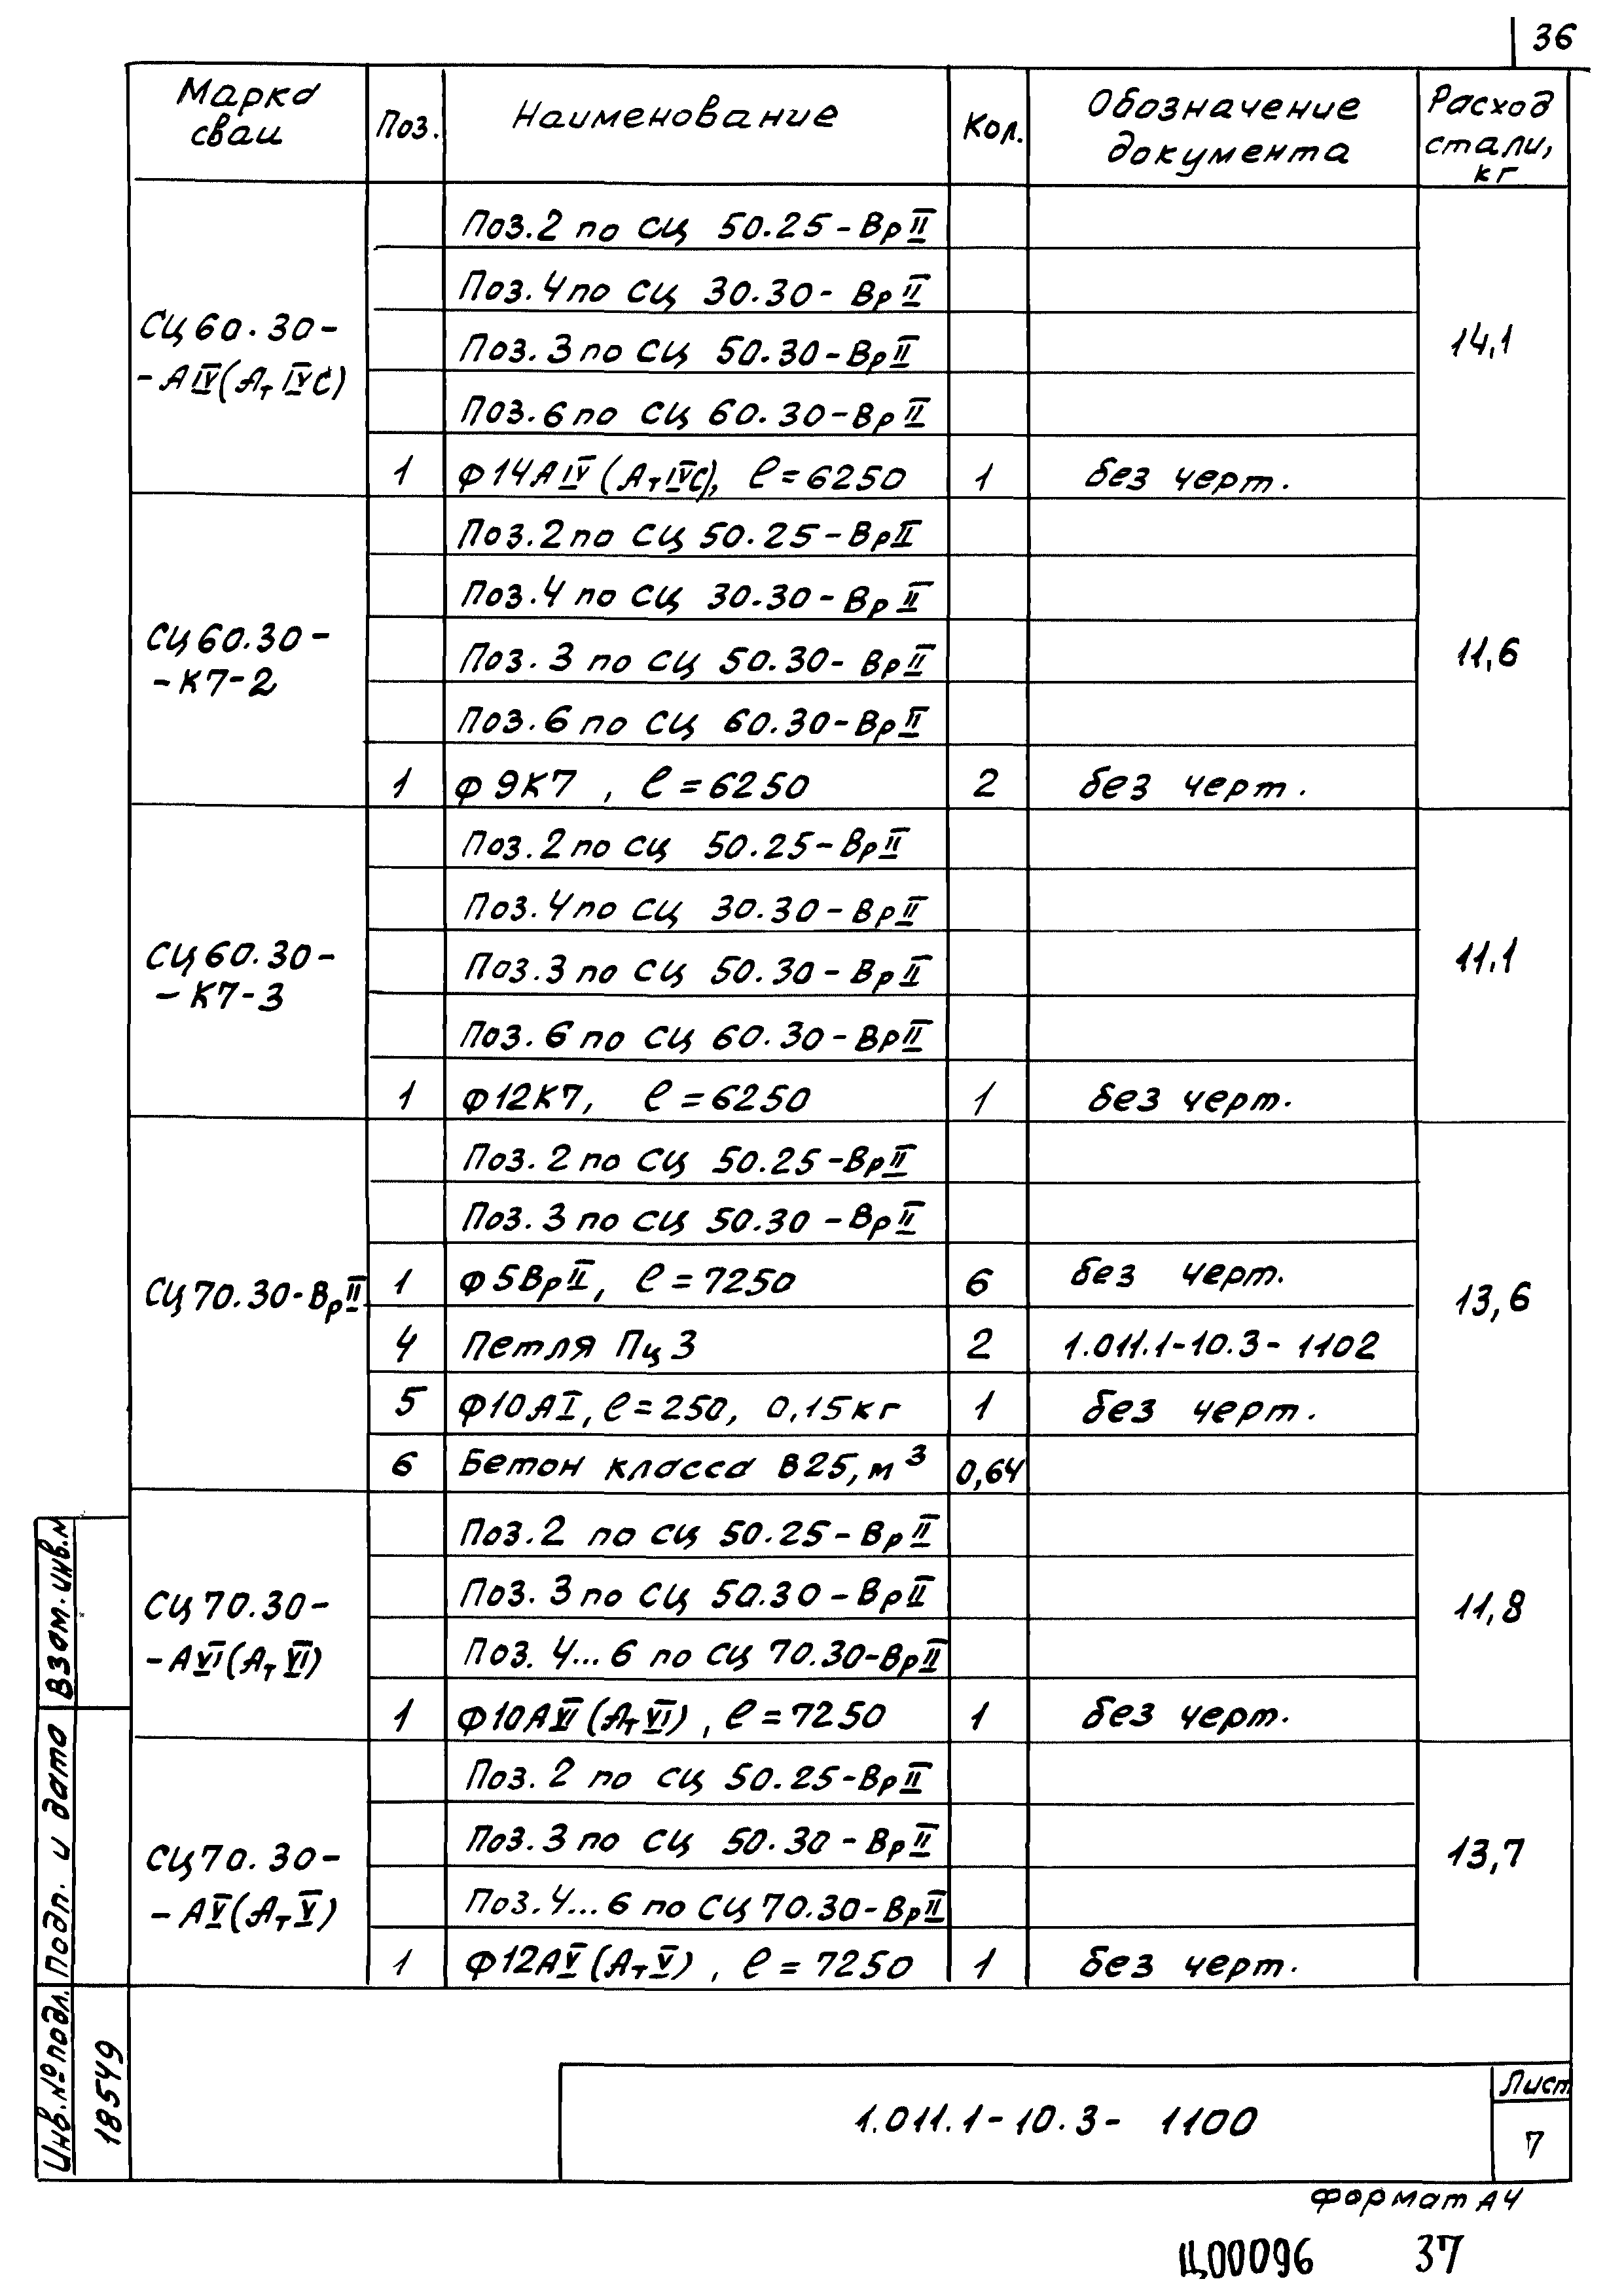 36
Марка сваи Поз. Наименование Кол. Обозначение документа Расход стали, кг
Поз.2 по СЦ 50.25-ВрII
Поз.4 по СЦ 30.30-ВрII
СЦ60.30-
-АIV(АтIVС)
Поз.3 по СЦ 50.30-ВрII
14,1
Поз.6 по СЦ 60.30-ВрII
1 ф14АIV(АтIVС), ℓ=6250 1 без черт.
Поз.2 по СЦ 50.25-ВрII
Поз.4 по СЦ 30.30-ВрII
СЦ60.30-
-К7-2
Поз.3 по СЦ 50.30-ВрII
11,6
Поз.6 по СЦ 60.30-ВрII
1 ф9К7, ℓ=6250 2 без черт.
Поз.2 по СЦ 50.25-ВрII
Поз.4 по СЦ 30.30-ВрII
СЦ60.30-
-К7-3
Поз.3 по СЦ 50.30-ВрII
11.1
Поз.6 по СЦ 60.30-ВрII
1 ф12К7, ℓ=6250 1 без черт.
Поз.2 по СЦ 50.25-ВрII
Поз.3 по СЦ 50.30-ВрII
СЦ70.30-ВрII 1 ф5ВрII, ℓ=7250 6 без черт. 13,6
4 Петля Пц3 2 1.011.1-10.3-1102
5 ф10АI, ℓ=250, 0,15кг 1 без черт.
6 Бетон класса В25, м³ 0,64
Поз.2 по СЦ 50.25-ВрII
СЦ70.30-
-АVI(АтVI)
Поз.3 по СЦ 50.30-ВрII
11,8
Поз. 4...6 по СЦ 70.30-ВрII
1 ф10АVI(АтVI), ℓ=7250 1 без черт.
Поз.2 по СЦ 50.25-ВрII
СЦ70.30-
-АV(АтV)
Поз.3 по СЦ 50.30-ВрII
13,7
Поз.4...6 по СЦ 70.30-ВрII
1 ф12АV(АтV), ℓ=7250 1 без черт.
Взам.инв.№
Подп. и дата
Инв.№ подл.
18549
1.011.1-10.3- 1100
Лист
7
Формат А4
Ц00096 37